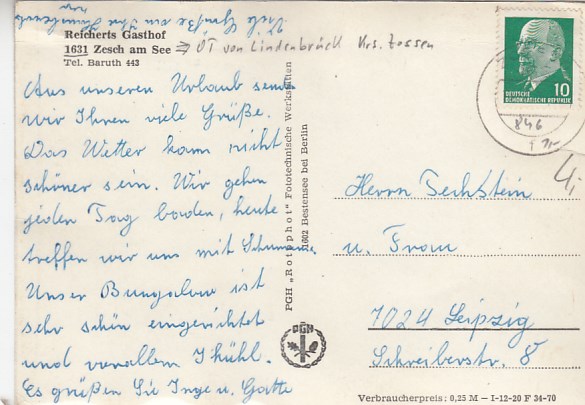 Viele Grüße an Ihre
Reicherts Gasthof
1631 Zesch am See ⇒ OT von Lindenbrück Krs. Zossen
Tel. Baruth 443
Aus unseren Urlaub senden
wir Ihnen viele Grüße.
Das Wetter kann nicht
schöner sein. Wir gehen
jeden Tag baden, heute
treffen wir uns mit Schumann.
Unser Bungalow ist
sehr schön eingerichtet
und vorallem kühl.
Es grüßen Sie Inge u. Gatte
PGH „Rotophot" Fototechnische Werkstätten
1602 Bestensee bei Berlin
PGH
DEUTSCHE
DEMOKRATISCHE REPUBLIK
10
846
4,-
Herrn Fechstein
u. Frau
7024 Leipzig
Schreiberstr. 8
Verbraucherpreis: 0,25 M – I-12-20 F 34-70